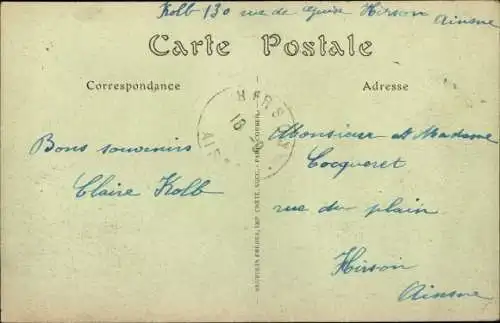 Kolb 130 rue de Guise Hirson
Aisne
Carte Postale
Correspondance
Adresse
HIRSON
18
Bons souvenirs
Claire Kolb
Monsieur et Madame
Cocqueret
rue du plain
Hirson
Aisne